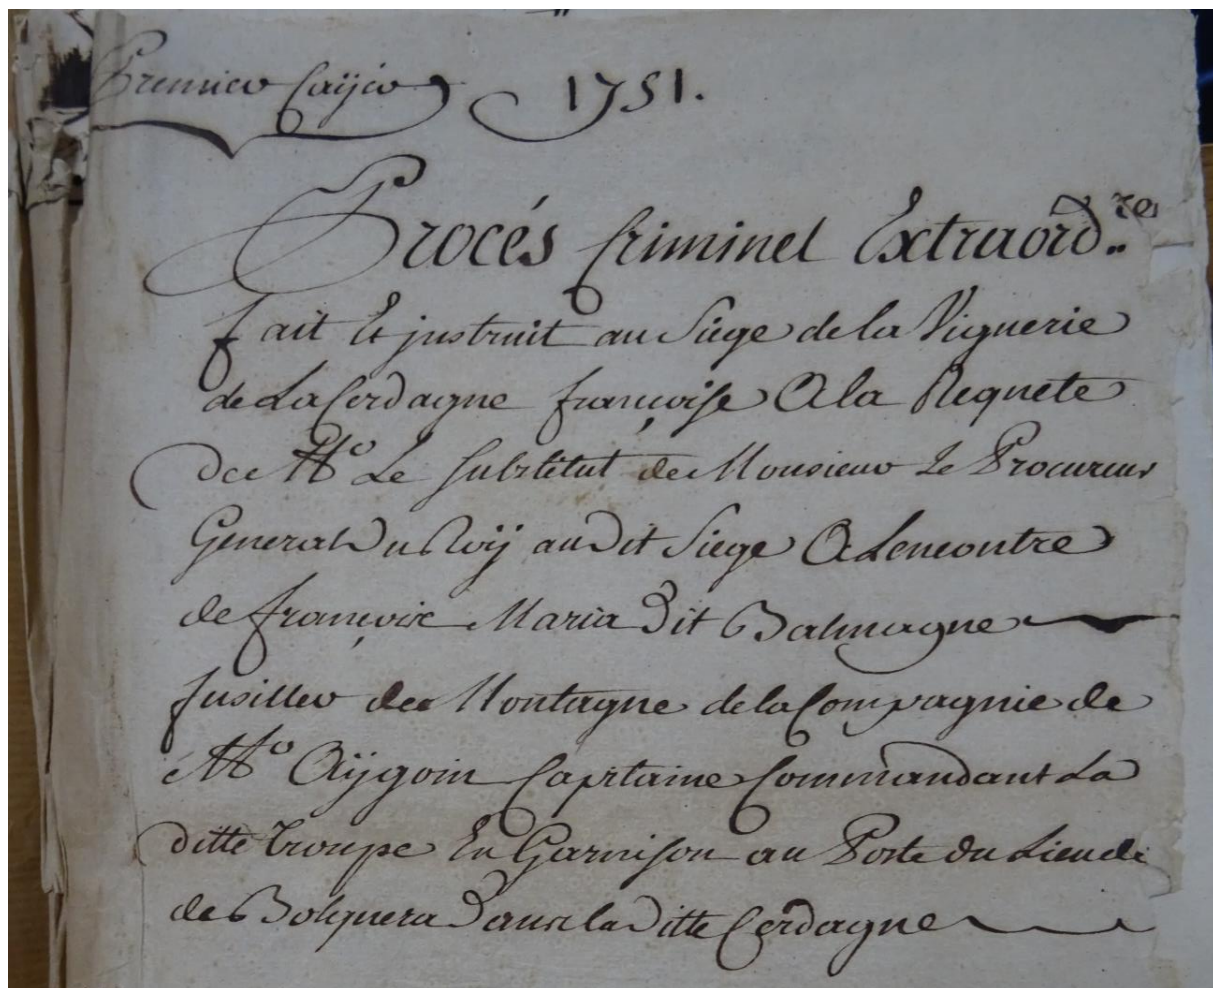 Premier Cayer 1751.
Procés Criminel Extraord.re
fait Et justruit au Siege de la Viguerie
de La Cerdagne françoise A la Requete
de Mr Le Substitut de Monsieur Le Procureur
General Du Roÿ au Dit Siege A Lencontre
de françois Maria Dit Balmagne
fusiller de Montagne de la Compagnie de
Mr Aÿgoin Capitaine Commandant La
ditte troupe En Garnison au Poste du Lieu de
de Bolquera Dans la Ditte Cerdagne